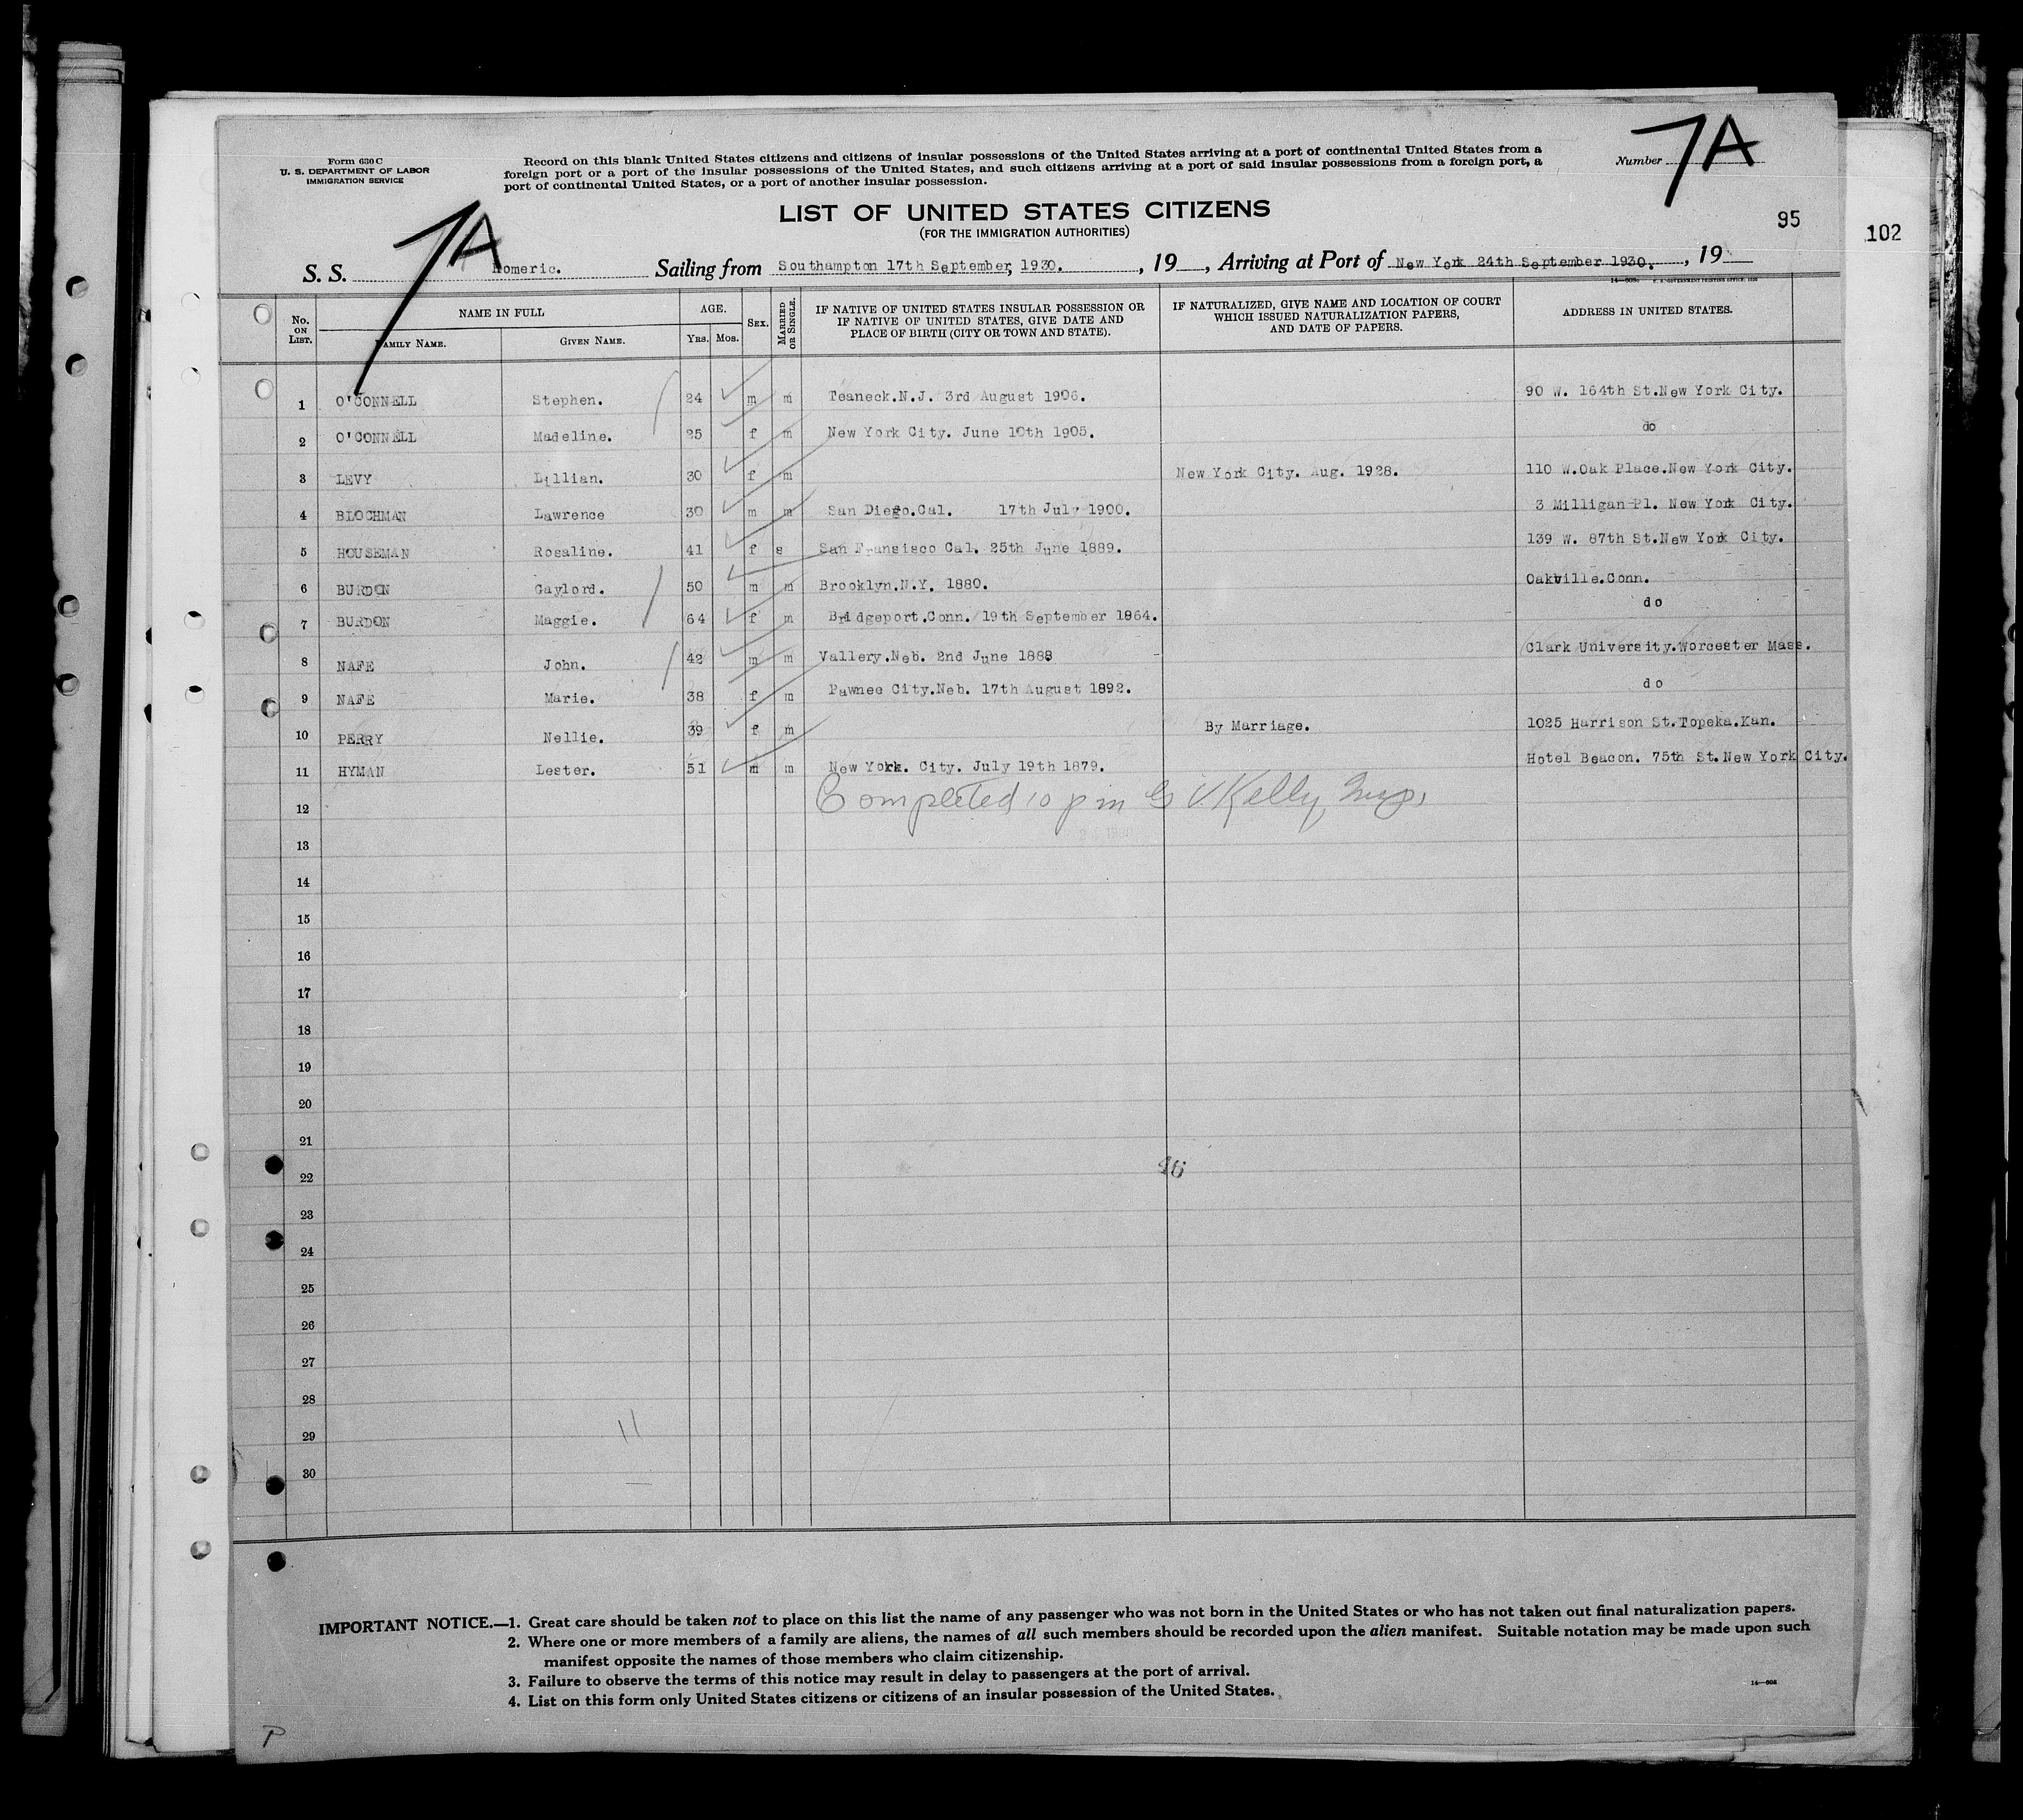 7A
Form 630 C
U. S. DEPARTMENT OF LABOR
IMMIGRATION SERVICE
Record on this blank United States citizens and citizens of insular possessions of the United States arriving at a port of continental United States from a
foreign port or a port of the insular possessions of the United States, and such citizens arriving at a port of said insular possessions from a foreign port, a
port of continental United States, or a port of another insular possession.
Number
7A
LIST OF UNITED STATES CITIZENS
(FOR THE IMMIGRATION AUTHORITIES)
95
102
S. S. Homeric. Sailing from Southampton 17th September, 1930. , 19 , Arriving at Port of New York 24th September 1930. , 19
No. ON LIST. NAME IN FULL FAMILY NAME. GIVEN NAME. AGE. YRS. MOS. SEX. MARRIED OR SINGLE. IF NATIVE OF UNITED STATES INSULAR POSSESSION OR IF NATIVE OF UNITED STATES, GIVE DATE AND PLACE OF BIRTH (CITY OR TOWN AND STATE). IF NATURALIZED, GIVE NAME AND LOCATION OF COURT WHICH ISSUED NATURALIZATION PAPERS, AND DATE OF PAPERS. ADDRESS IN UNITED STATES.
1 O'CONNELL Stephen. 24 m m Teaneck.N.J. 3rd August 1906. 90 W. 164th St.New York City.
2 O'CONNELL Madeline. 25 f m New York City. June 10th 1905. do
3 LEVY Lillian. 30 f m New York City. Aug. 1928. 110 W.Oak Place.New York City.
4 BLOCHMAN Lawrence 30 m m San Diego.Cal. 17th July 1900. 3 Milligan Pl. New York City.
5 HOUSEMAN Rosaline. 41 f s San Fransisco Cal. 25th June 1889. 139 W. 87th St.New York City.
6 BURDON Gaylord. 50 m m Brooklyn.N.Y. 1880. Oakville.Conn.
7 BURDON Maggie. 64 f m Bridgeport.Conn. 19th September 1864. do
8 NAFE John. 42 m m Vallery.Neb. 2nd June 1888 Clark University.Worcester Mass.
9 NAFE Marie. 38 f m Pawnee City.Neb. 17th August 1892. do
10 PERRY Nellie. 39 f m By Marriage. 1025 Harrison St.Topeka.Kan.
11 HYMAN Lester. 51 m m New York. City. July 19th 1879. Hotel Beacon. 75th St.New York City.
12 Completed 10 pm G V Kelly Insp.
13
14
15
16
17
18
19
20
21
22
46
23
24
25
26
27
28
29
11
30
IMPORTANT NOTICE.—1. Great care should be taken not to place on this list the name of any passenger who was not born in the United States or who has not taken out final naturalization papers.
2. Where one or more members of a family are aliens, the names of all such members should be recorded upon the alien manifest. Suitable notation may be made upon such
manifest opposite the names of those members who claim citizenship.
3. Failure to observe the terms of this notice may result in delay to passengers at the port of arrival.
4. List on this form only United States citizens or citizens of an insular possession of the United States.
P